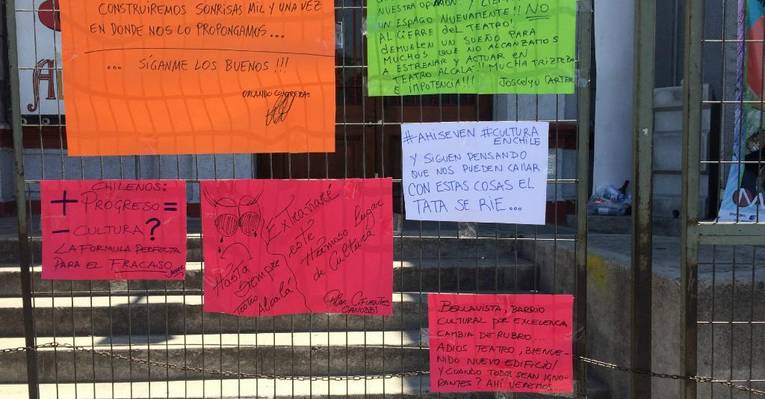 CONSTRUIREMOS SONRISAS MIL Y UNA VEZ
EN DONDE NOS LO PROPONGAMOS...
... SÍGANME LOS BUENOS !!!
NUESTRA OPINIÓN Y
UN ESPACIO NUEVAMENTE!! NO
AL CIERRE DEL TEATRO!
DEMUELEN UN SUEÑO PARA
MUCHOS QUE NO ALCANZAMOS
A ESTRENAR Y ACTUAR EN
TEATRO ALCALÁ!! MUCHA TRIZTEZA
E IMPOTENCIA!!!
JOSCELYN CARTER
#AHISEVEN #CULTURA
ENCHILE
Y SIGUEN PENSANDO
QUE NOS PUEDEN CALLAR
CON ESTAS COSAS EL
TATA SE RIE...
CHILENOS:
+ PROGRESO =
- CULTURA?
LA FORMULA PERFECTA
PARA EL FRACASO
Extrañaré
este
Hermoso Lugar
de Cultura
Hasta
Siempre
Teatro
Alcalá
Pilar Cifuentes
BELLAVISTA, BARRIO
CULTURAL POR EXCELENCIA
CAMBIA DE RUBRO...
ADIOS TEATRO, BIENVE-
NIDO NUEVO EDIFICIO!
Y CUANDO TODOS SEAN IGNO-
RANTES? AHÍ VEREMOS